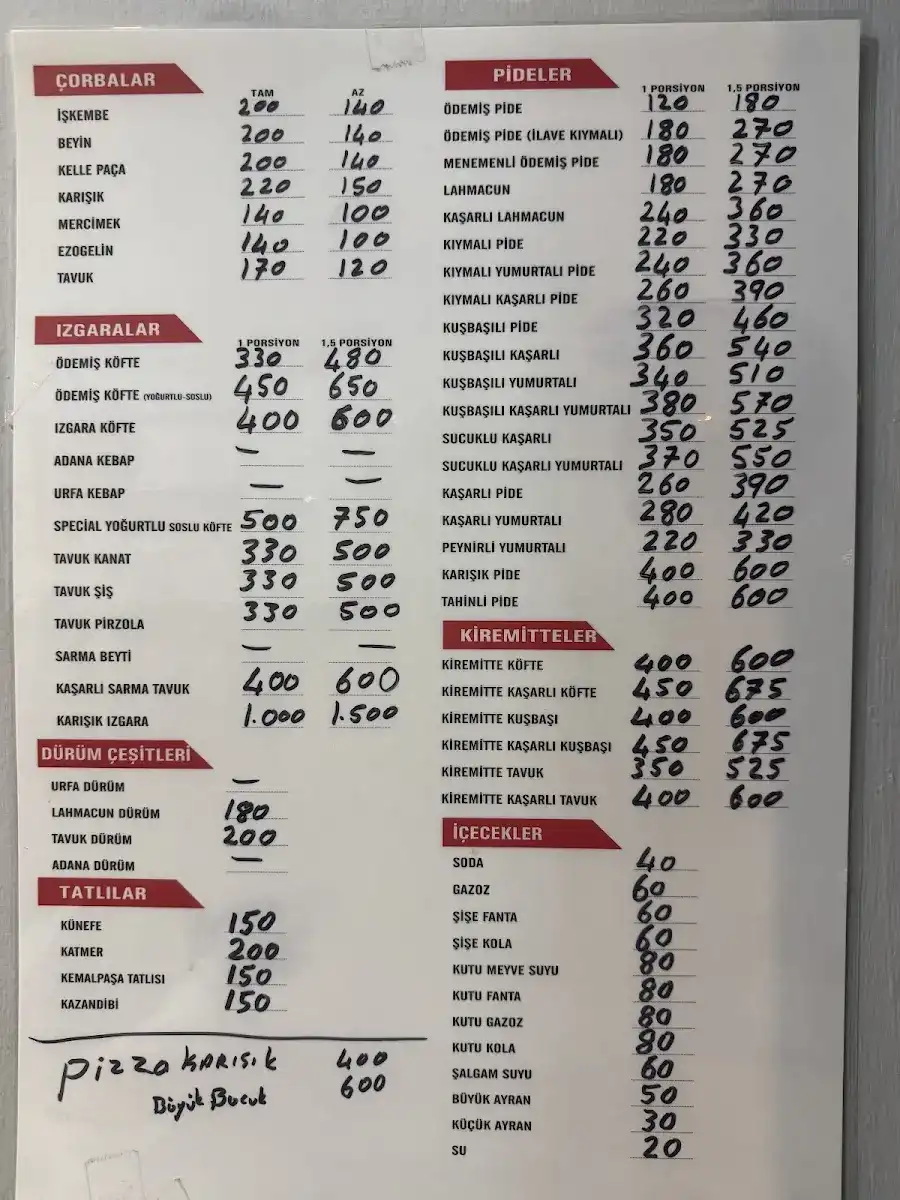 ÇORBALAR
TAM AZ
İŞKEMBE 200 140
BEYİN 200 140
KELLE PAÇA 200 140
KARIŞIK 220 150
MERCİMEK 140 100
EZOGELİN 140 100
TAVUK 170 120
IZGARALAR
1 PORSİYON 1,5 PORSİYON
ÖDEMİŞ KÖFTE 330 480
ÖDEMİŞ KÖFTE (YOĞURTLU-SOSLU) 450 650
IZGARA KÖFTE 400 600
ADANA KEBAP — —
URFA KEBAP — —
SPECİAL YOĞURTLU SOSLU KÖFTE 500 750
TAVUK KANAT 330 500
TAVUK ŞİŞ 330 500
TAVUK PİRZOLA 330 500
SARMA BEYTİ — —
KAŞARLI SARMA TAVUK 400 600
KARIŞIK IZGARA 1.000 1.500
DÜRÜM ÇEŞİTLERİ
URFA DÜRÜM —
LAHMACUN DÜRÜM 180
TAVUK DÜRÜM 200
ADANA DÜRÜM —
TATLILAR
KÜNEFE 150
KATMER 200
KEMALPAŞA TATLISI 150
KAZANDİBİ 150
Pizza KARIŞIK 400
Büyük Bucuk 600
PİDELER
1 PORSİYON 1,5 PORSİYON
ÖDEMİŞ PİDE 120 180
ÖDEMİŞ PİDE (İLAVE KIYMALI) 180 270
MENEMENLİ ÖDEMİŞ PİDE 180 270
LAHMACUN 180 270
KAŞARLI LAHMACUN 240 360
KIYMALI PİDE 220 330
KIYMALI YUMURTALI PİDE 240 360
KIYMALI KAŞARLI PİDE 260 390
KUŞBAŞILI PİDE 320 460
KUŞBAŞILI KAŞARLI 360 540
KUŞBAŞILI YUMURTALI 340 510
KUŞBAŞILI KAŞARLI YUMURTALI 380 570
SUCUKLU KAŞARLI 350 525
SUCUKLU KAŞARLI YUMURTALI 370 550
KAŞARLI PİDE 260 390
KAŞARLI YUMURTALI 280 420
PEYNİRLİ YUMURTALI 220 330
KARIŞIK PİDE 400 600
TAHİNLİ PİDE 400 600
KİREMİTTELER
KİREMİTTE KÖFTE 400 600
KİREMİTTE KAŞARLI KÖFTE 450 675
KİREMİTTE KUŞBAŞI 400 600
KİREMİTTE KAŞARLI KUŞBAŞI 450 675
KİREMİTTE TAVUK 350 525
KİREMİTTE KAŞARLI TAVUK 400 600
İÇECEKLER
SODA 40
GAZOZ 60
ŞİŞE FANTA 60
ŞİŞE KOLA 60
KUTU MEYVE SUYU 80
KUTU FANTA 80
KUTU GAZOZ 80
KUTU KOLA 80
ŞALGAM SUYU 60
BÜYÜK AYRAN 50
KÜÇÜK AYRAN 30
SU 20